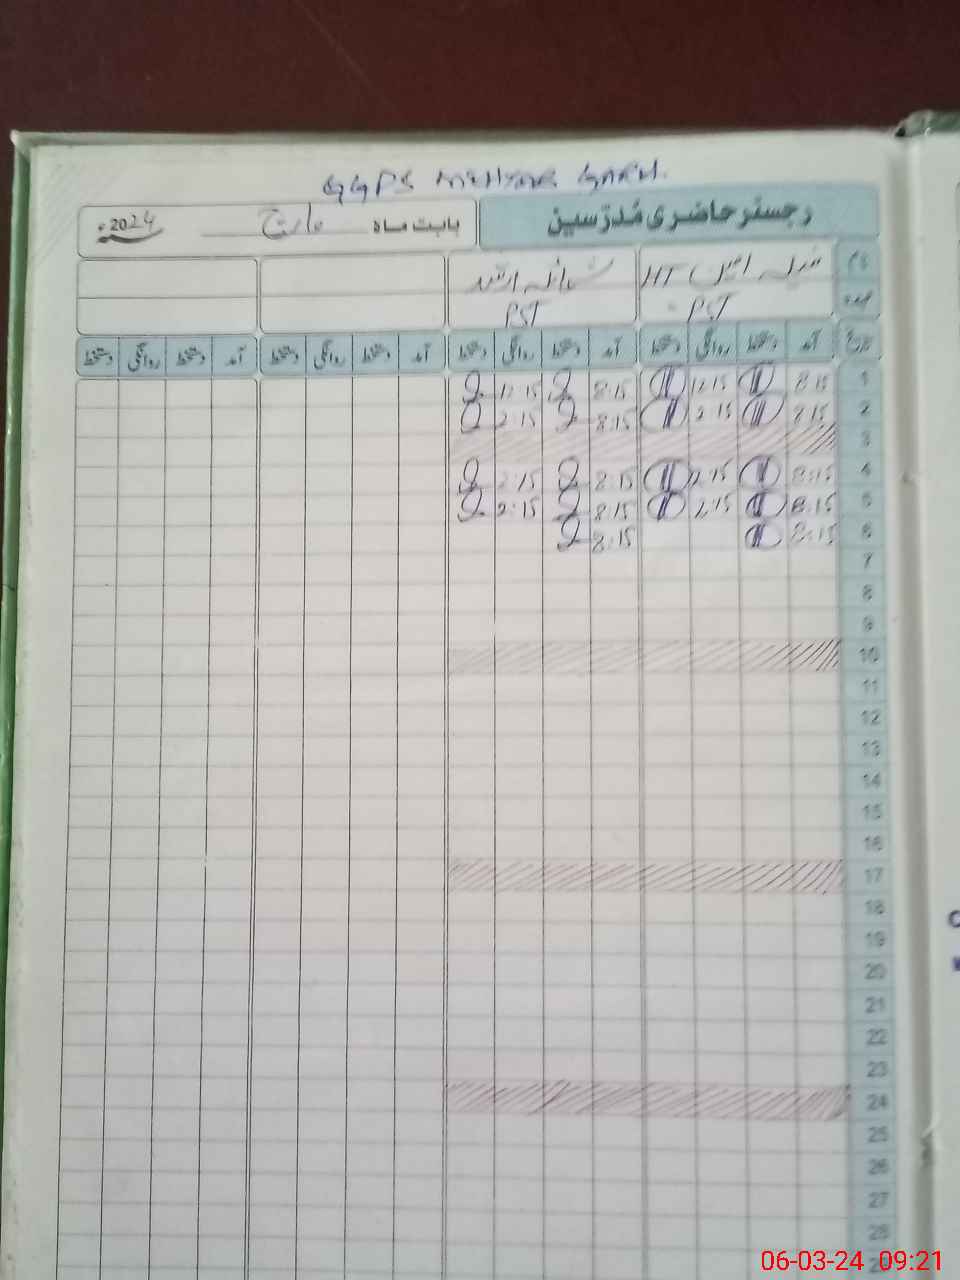 GGPS
رجسٹر حاضری مُدرّسین
بابت ماہ مارچ 2024ء
نام HT
عہدہ PST PST
تاریخ آمد دستخط روانگی دستخط آمد دستخط روانگی دستخط آمد دستخط روانگی دستخط آمد دستخط روانگی دستخط
1 8:15 12:15 8:15 12:15
2 8:15 2:15 8:15 2:15
3
4 8:15 2:15 8:15 2:15
5 8:15 2:15 8:15 2:15
6 8:15 8:15
7
8
9
10
11
12
13
14
15
16
17
18
19
20
21
22
23
24
25
26
27
28
06-03-24 09:21